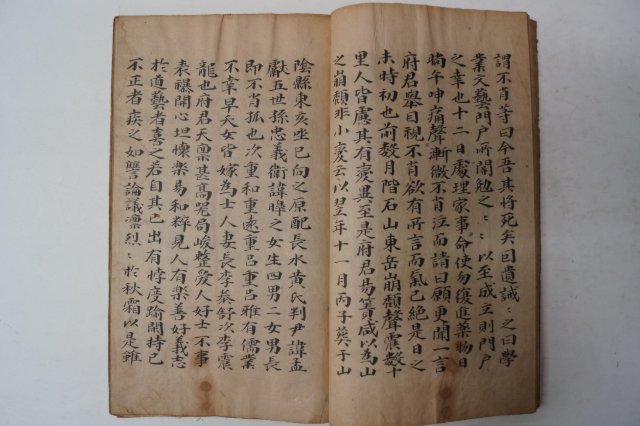 謂不肖等曰今吾其將死矣因遺誡：之曰學
業文藝門戶所關勉之：：以至成立則門戶
之幸也十二日處理家事命使勿復進藥物日
晌午呻痛聲漸微不肖泣而請曰願更聞一言
府君擧目視不肖欲有所言而氣已絶是日之
未時初也前數月階石山東岳崩頹聲震數十
里人皆慮其有憂異至是府君易簀咸以為山
之崩頹非小憂云以翌年十一月丙子葬于山
陰縣東亥坐巳向之原配長水黃氏判尹諱孟
獻五世孫忠義衛諱暐之女生四男二女男長
即不肖孤也次重和重遠重呂重呂雅有儒業
不幸早夭女皆嫁為士人妻長李蓁舒次李震
龍也府君天稟甚高咒局峻整愛人好士不事
表襮開心坦懷樂易和粹見人有樂善好義志
於道藝者喜之若自其己出有悖度踰閑持己
不正者疾之如讐論議凛烈：於秋霜以是雖